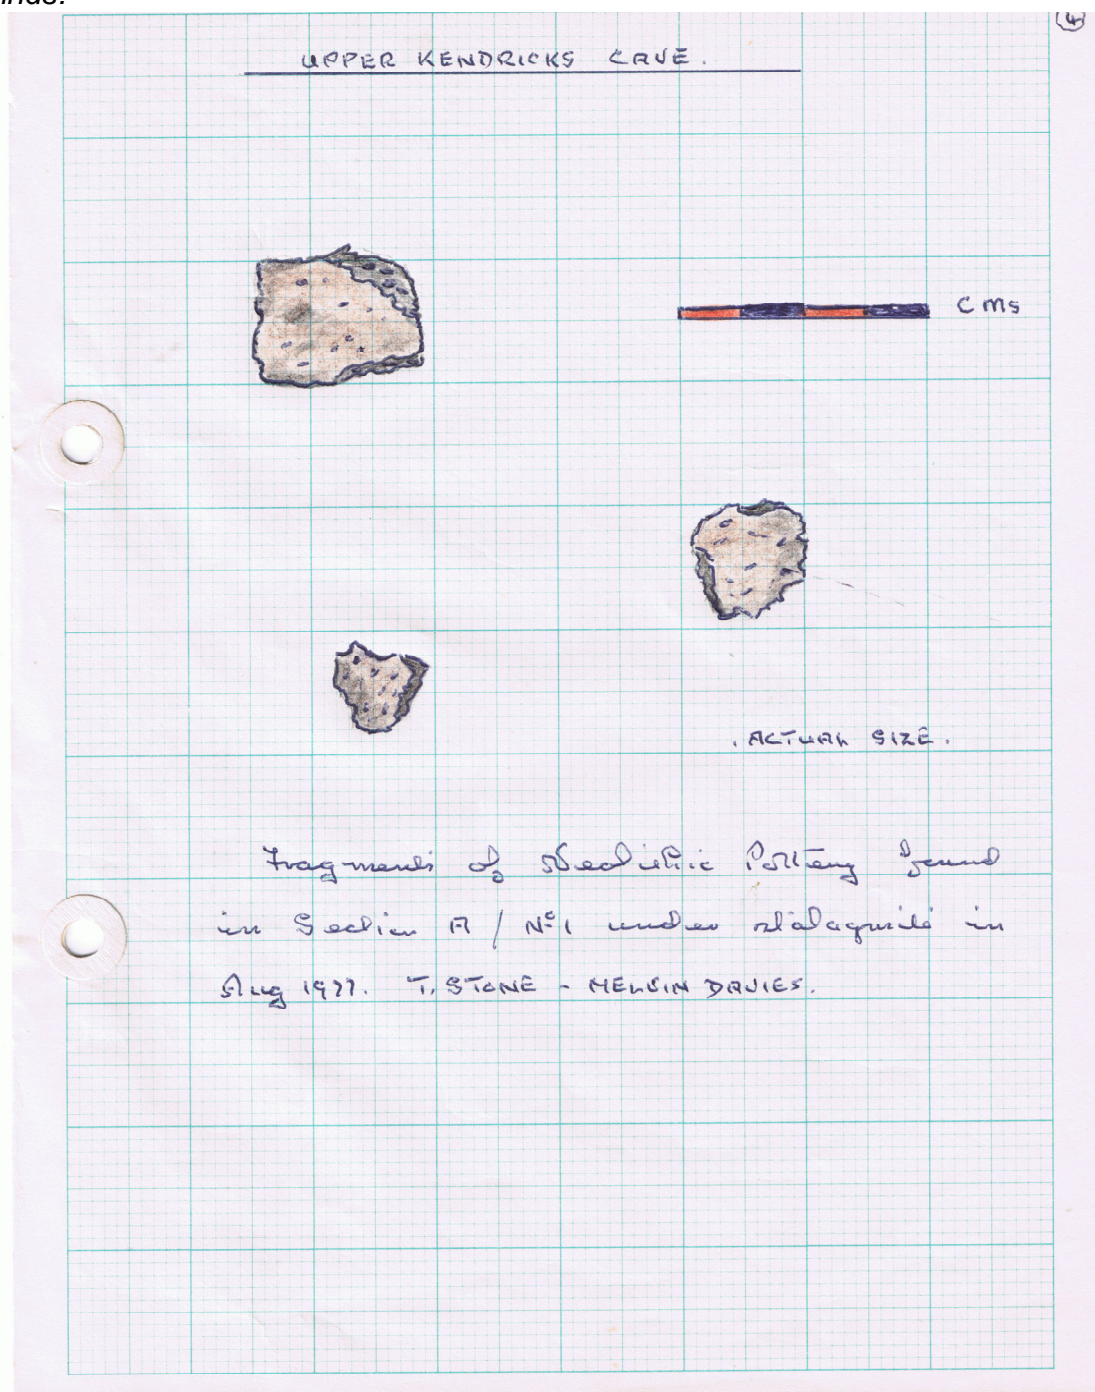 inds.
4
UPPER KENDRICKS CAVE.
CMS
. ACTUAL SIZE.
Fragments of Neolithic Pottery found
in Section A / Nº1 under stalagmite in
Aug 1977. T. STONE - MELVIN DAVIES.